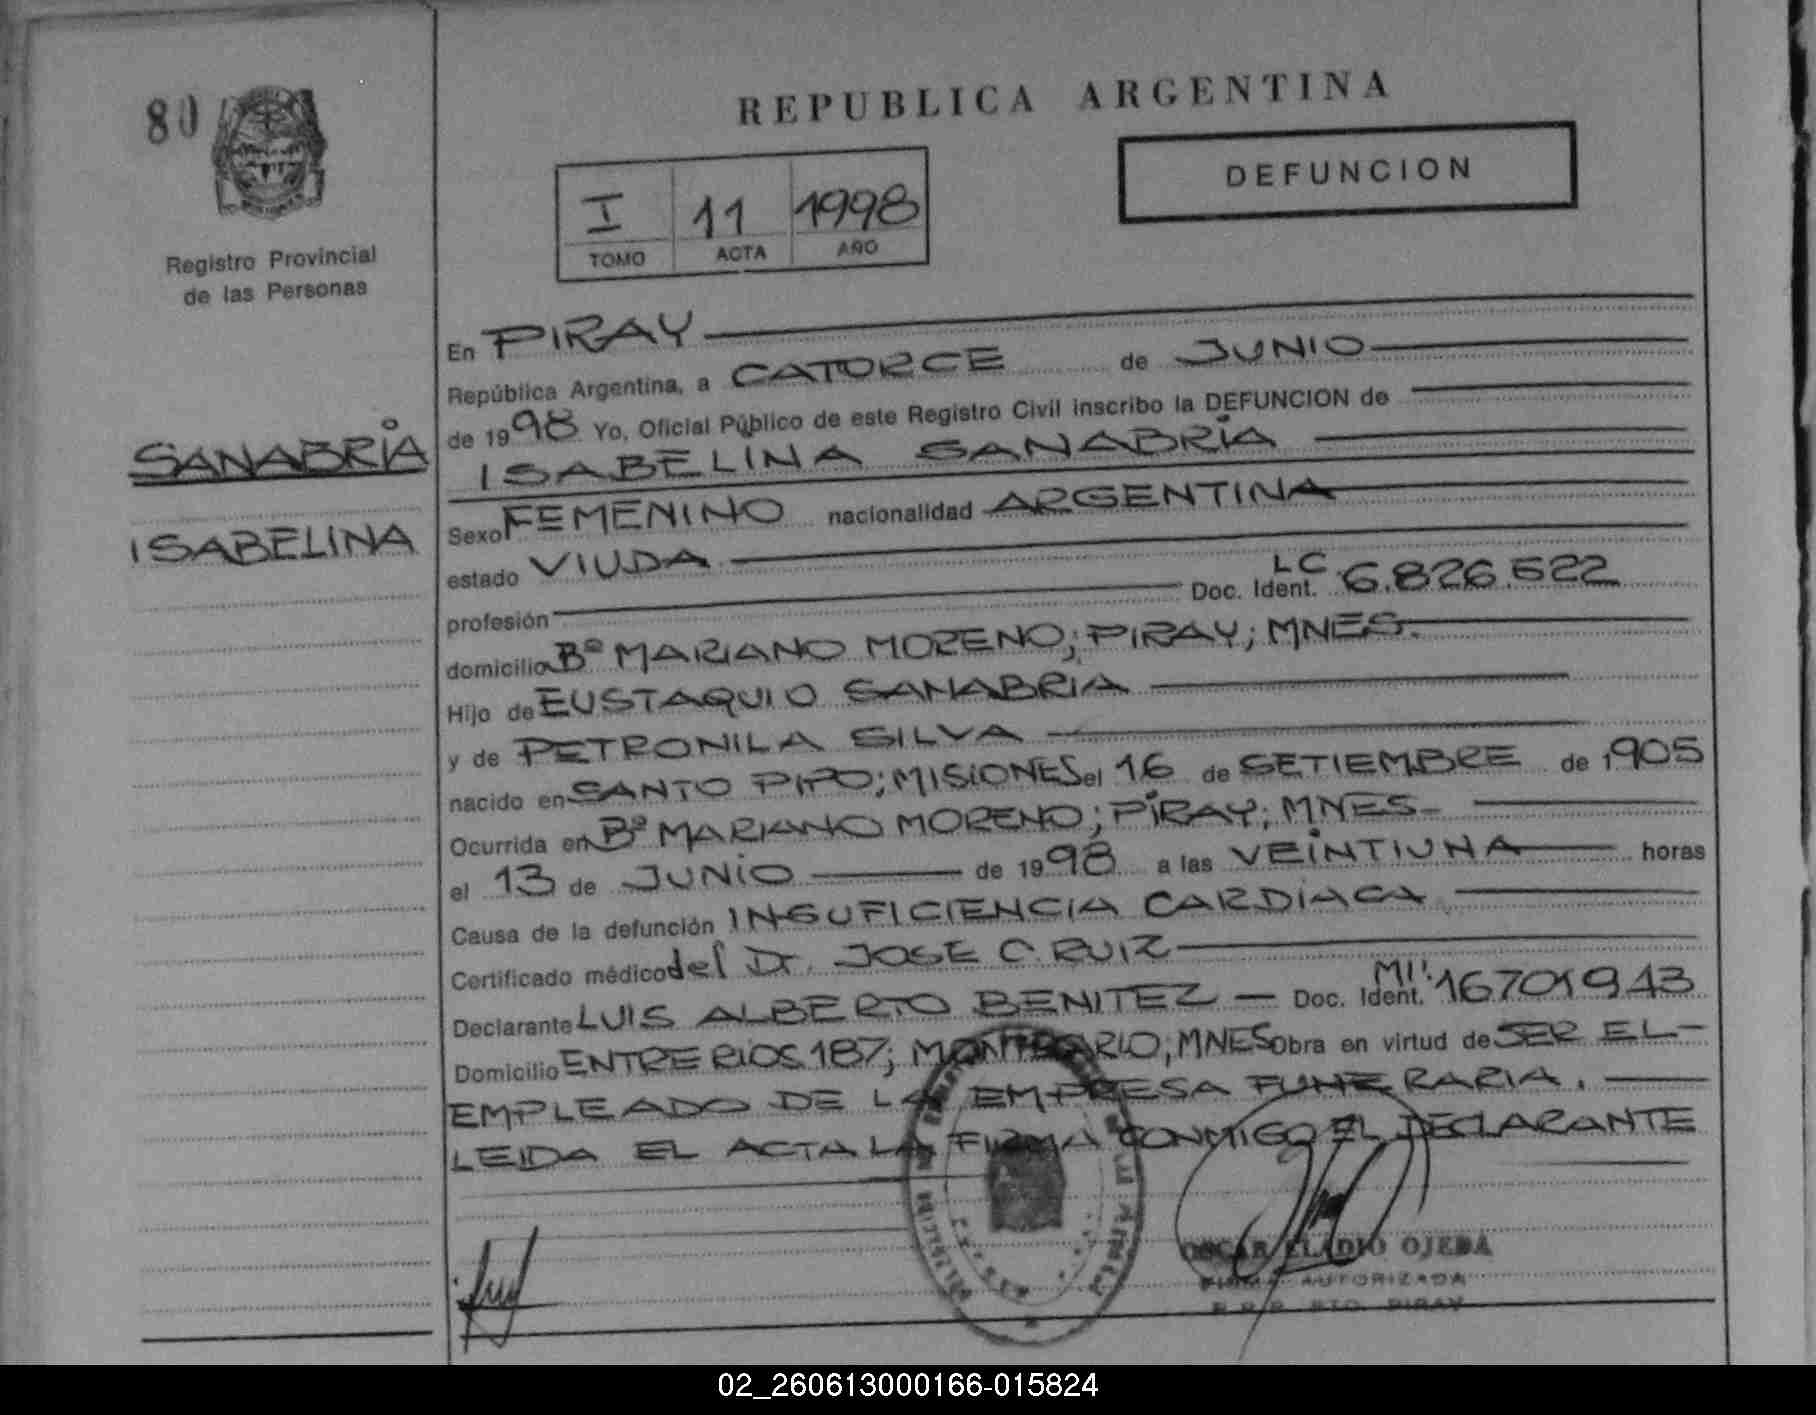 80
REPUBLICA ARGENTINA
DEFUNCION
I 11 1998
TOMO ACTA AÑO
Registro Provincial
de las Personas
SANABRIA
ISABELINA
En PIRAY
República Argentina, a CATORCE de JUNIO
de 1998 Yo, Oficial Público de este Registro Civil inscribo la DEFUNCION de
ISABELINA SANABRIA
Sexo FEMENINO nacionalidad ARGENTINA
estado VIUDA
profesión Doc. Ident. LC 6.826.522
domicilio Bº MARIANO MORENO; PIRAY; MNES.
Hijo de EUSTAQUIO SANABRIA
y de PETRONILA SILVA
nacido en SANTO PIPO; MISIONES el 16 de SETIEMBRE de 1905
Ocurrida en Bº MARIANO MORENO; PIRAY; MNES-
el 13 de JUNIO de 1998 a las VEINTIUNA horas
Causa de la defunción INSUFICIENCIA CARDIACA
Certificado médico del Dr. JOSE C. RUIZ
Declarante LUIS ALBERTO BENITEZ - Doc. Ident. MI: 16701943
Domicilio ENTRE RIOS 187; MONTECARLO; MNES obra en virtud de SER EL-
EMPLEADO DE LA EMPRESA FUNERARIA.
LEIDA EL ACTA LA FIRMA CONMIGO EL DECLARANTE
OSCAR ELADIO OJEDA
FIRMA AUTORIZADA
R.P.P. PTO. PIRAY
02_260613000166-015824